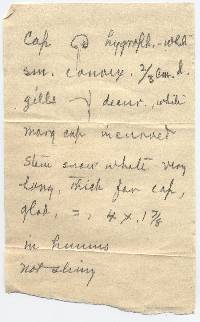 Cap hygroph. - white
sm. convex. 2/3 cm. d.
gills decur., white
marg cap incurved
Stem snow white very
long, thick for cap,
glab, =, 4 x . 1 7/8
in humus
not slimy